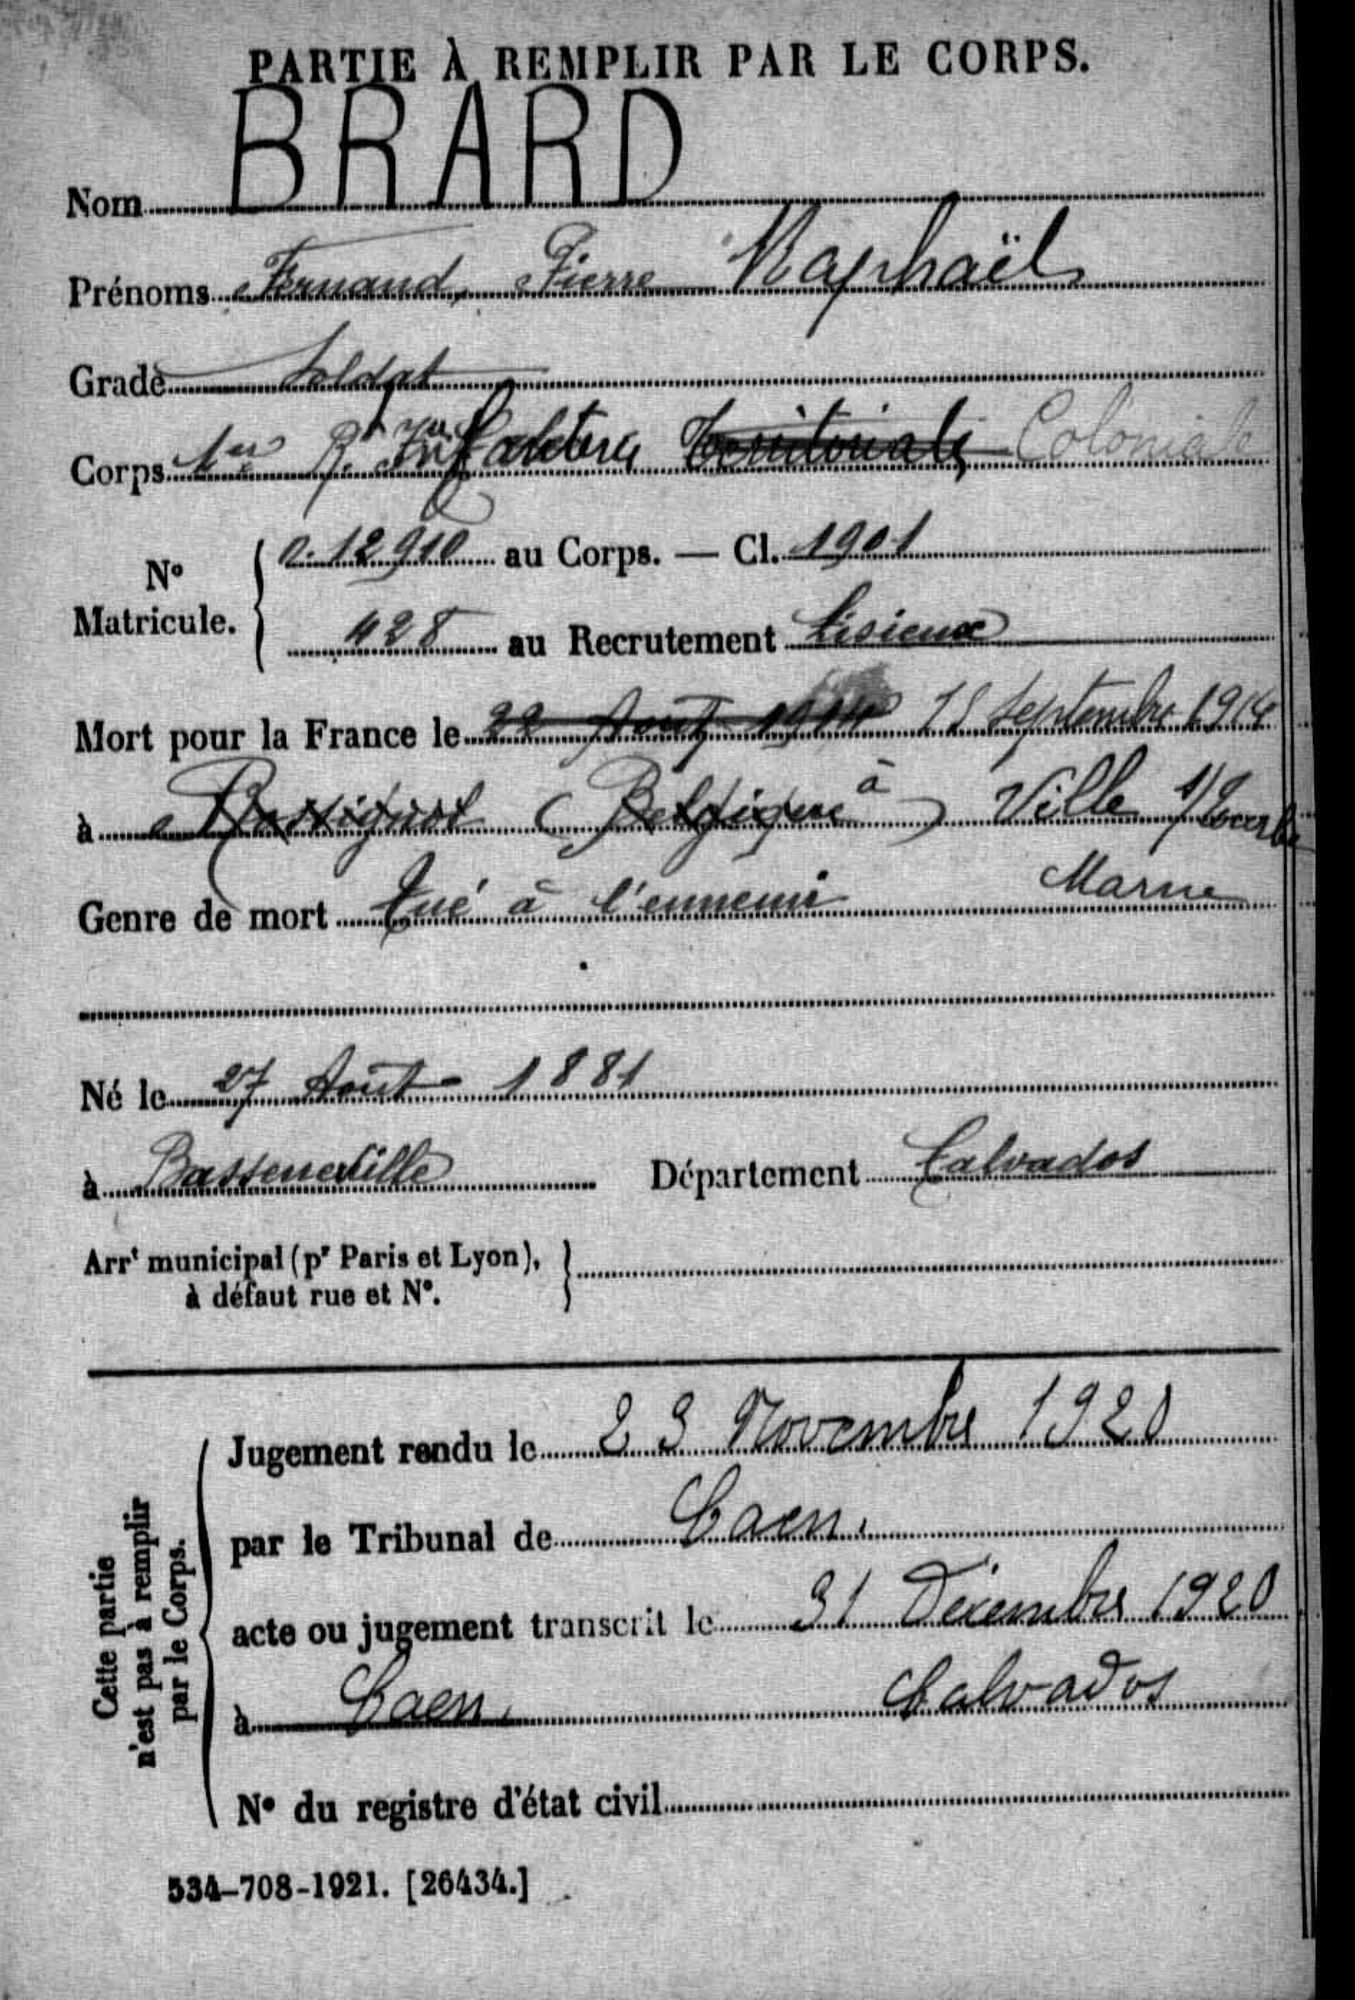 PARTIE À REMPLIR PAR LE CORPS.
Nom BRARD
Prénoms Fernand, Pierre Raphaël
Grade Soldat
Corps 1er Rt Infanterie Territoriale Coloniale
No Matricule. 12910 au Corps. — Cl. 1901
428 au Recrutement Lisieux
Mort pour la France le 22 Août 1914 15 Septembre 1914
à Rossignol (Belgique) à Ville s/Tourbe
Marne
Genre de mort Tué à l'ennemi
Né le 27 Août 1881
à Basseneville Département Calvados
Arrt municipal (pr Paris et Lyon),
à défaut rue et No.
Cette partie
n'est pas à remplir
par le Corps.
Jugement rendu le 23 Novembre 1920
par le Tribunal de Caen.
acte ou jugement transcrit le 31 Décembre 1920
à Caen, Calvados
No du registre d'état civil
534-708-1921. [26434.]